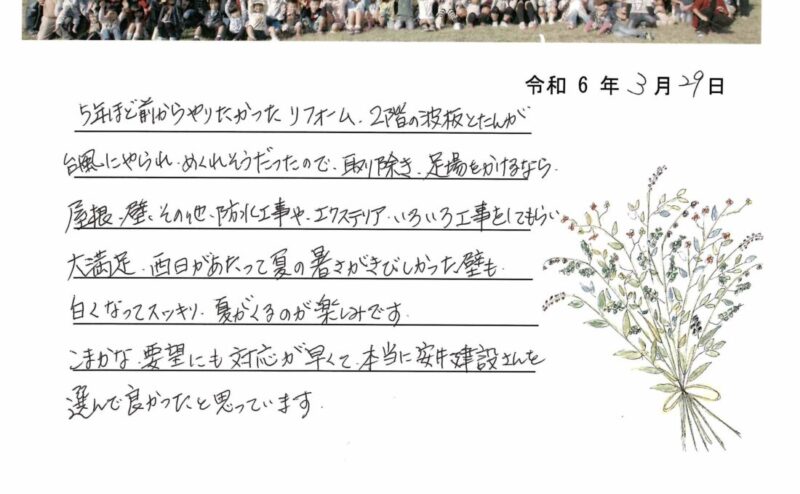 令和 6 年 3 月 29 日
5年ほど前からやりたかったリフォーム、2階の波板とたんが
台風にやられ、めくれそうだったので、取り除き、足場をかけるなら、
屋根、壁、その他、防水工事や、エクステリア、いろいろ工事をしてもらい
大満足。西日があたって夏の暑さがきびしかった壁も、
白くなってスッキリ。夏がくるのが楽しみです。
こまかな、要望にも対応が早くて、本当に安井建設さんを
選んで良かったと思っています。